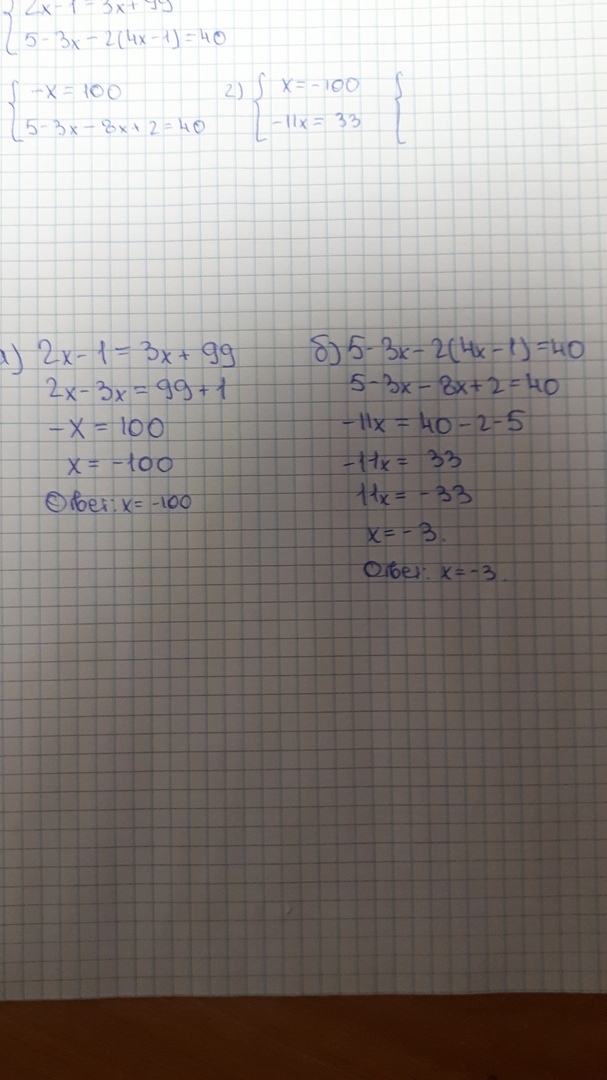 2x-1=3x+99
5-3x-2(4x-1)=40
-x=100
5-3x-8x+2=40
2) x=-100
-11x=33
а) 2x-1=3x+99
2x-3x=99+1
-x=100
x=-100
Ответ: x=-100
б) 5-3x-2(4x-1)=40
5-3x-8x+2=40
-11x=40-2-5
-11x=33
11x=-33
x=-3.
Ответ: x=-3.